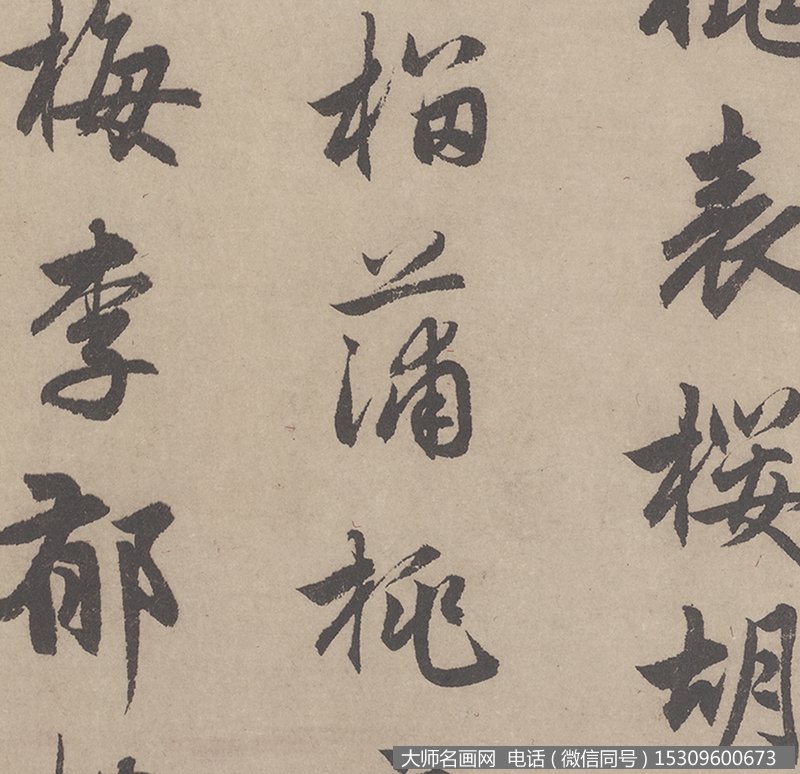 桃表櫻胡
榴蒲桃
梅李郁
大师名画网 电话(微信同号)15309600673